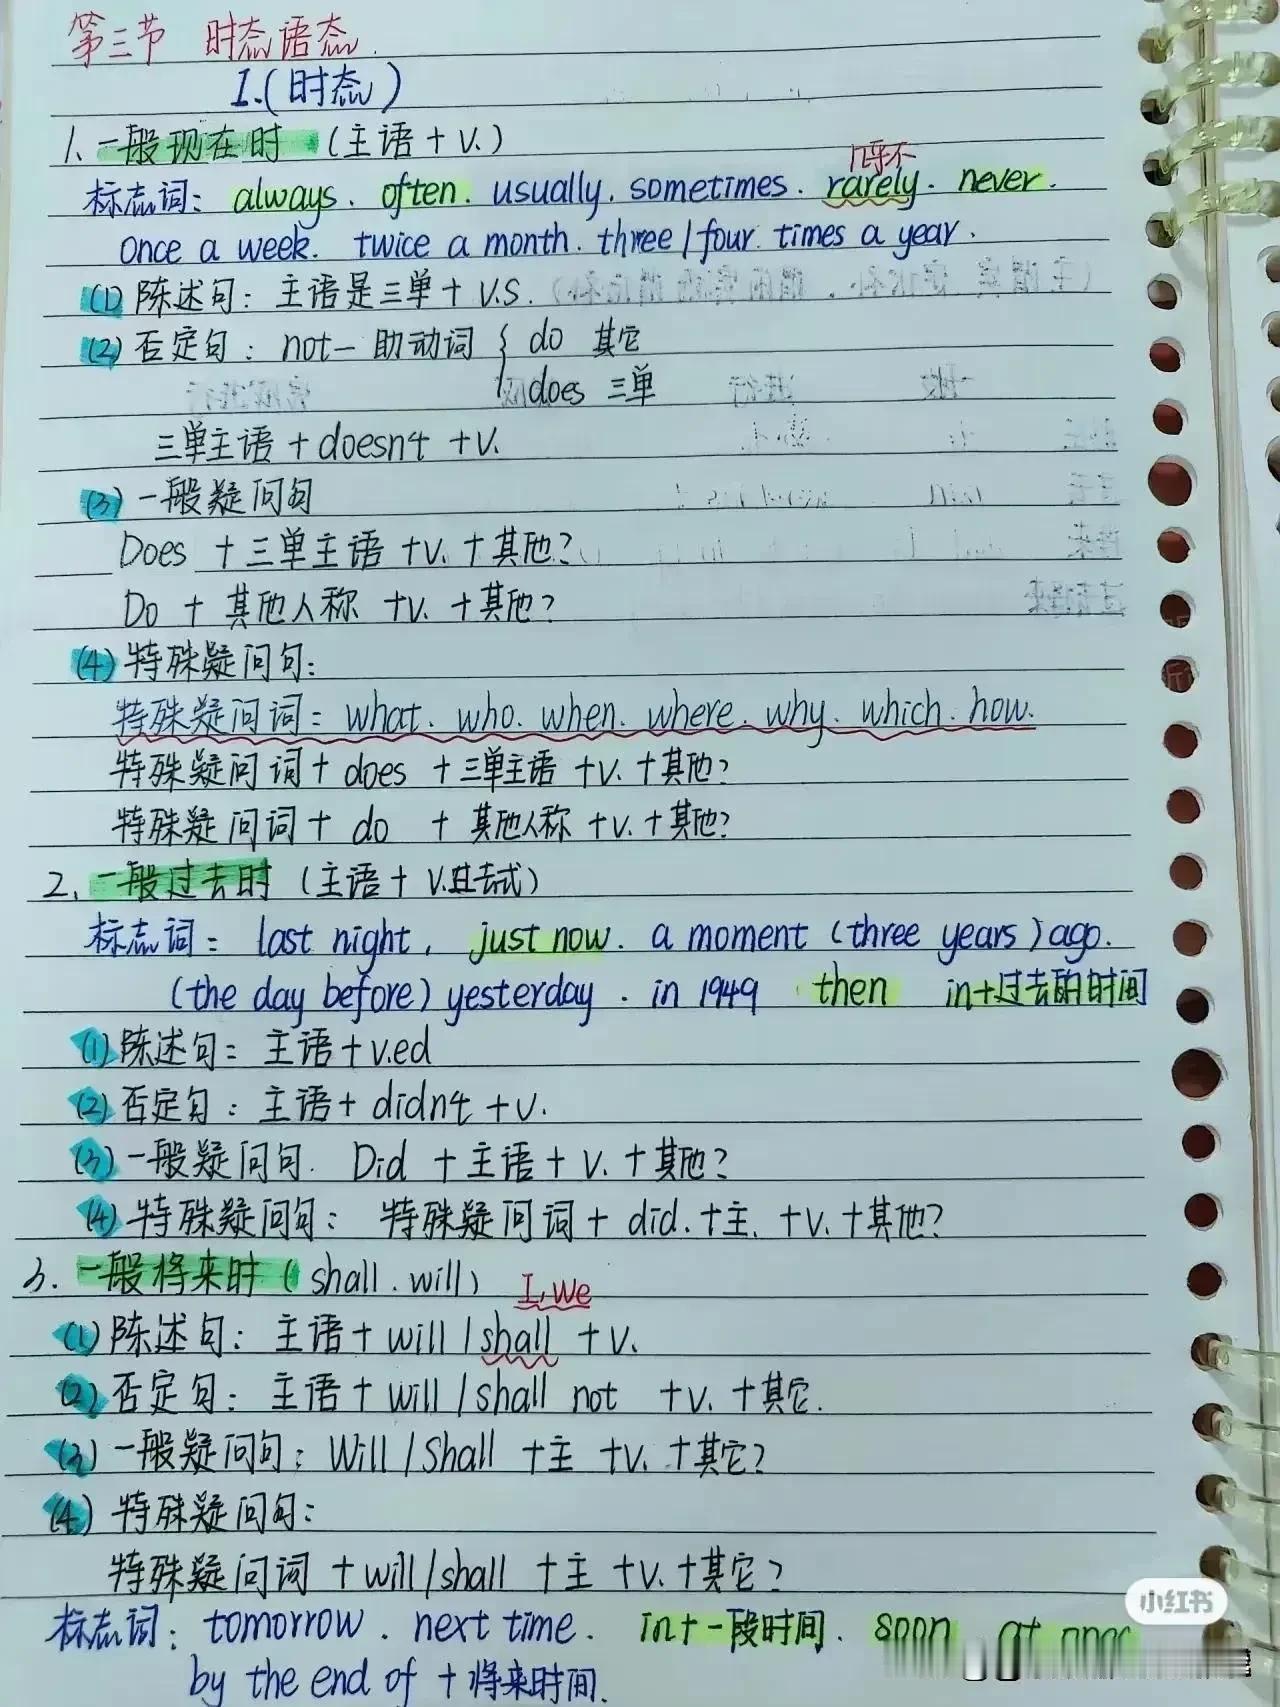 第三节 时态语态.
I.(时态)
1.一般现在时(主语+V.)
几乎不
标志词：always. often. usually. sometimes. rarely. never.
once a week. twice a month. three/four times a year.
(1)陈述句：主语是三单+V.S.
(2)否定句：not—助动词{do 其它
does 三单
三单主语+doesn't+V.
(3)一般疑问句
Does+三单主语+V.+其他?
Do+其他人称+V.+其他?
(4)特殊疑问句：
特殊疑问词：what. who. when. where. why. which. how.
特殊疑问词+does+三单主语+V.+其他?
特殊疑问词+do+其他人称+V.+其他?
2.一般过去时(主语+V.过去式)
标志词：last night, just now. a moment (three years) ago.
(the day before) yesterday. in 1949 then in+过去的时间
(1)陈述句：主语+V.ed
(2)否定句：主语+didn't+V.
(3)一般疑问句. Did+主语+V.+其他?
(4)特殊疑问句：特殊疑问词+did.+主.+V.+其他?
3.一般将来时(shall.will)
I,we
(1)陈述句：主语+will/shall+V.
(2)否定句：主语+will/shall not+V.+其它.
(3)一般疑问句：Will/Shall+主+V.+其它?
(4)特殊疑问句：
特殊疑问词+will/shall+主+V.+其它?
标志词：tomorrow. next time. in+一段时间. soon at once
by the end of+将来时间.
小红书